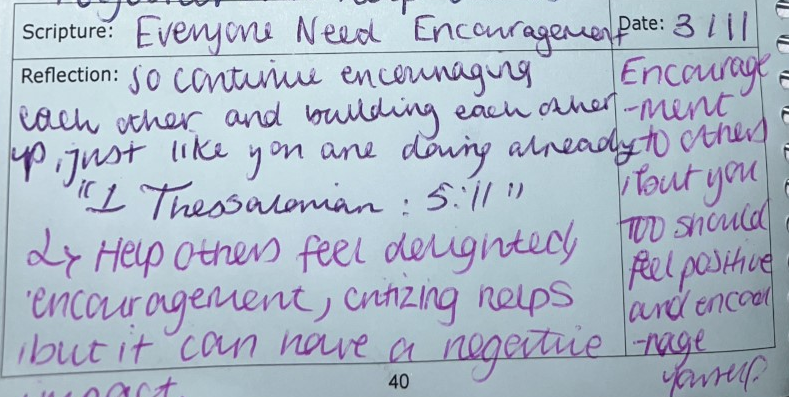 Scripture: Everyone Need Encouragement
Date: 3/11
Reflection: So continue encouraging
each other and building each other
up, just like you are doing already
"1 Thessalonian : 5:11"
Help others feel delighted,
encouragement, critizing helps
but it can have a negative
impact.
Encourage
-ment
to others
, but you
TOO should
feel positive
and encou
-rage
yourself.
40